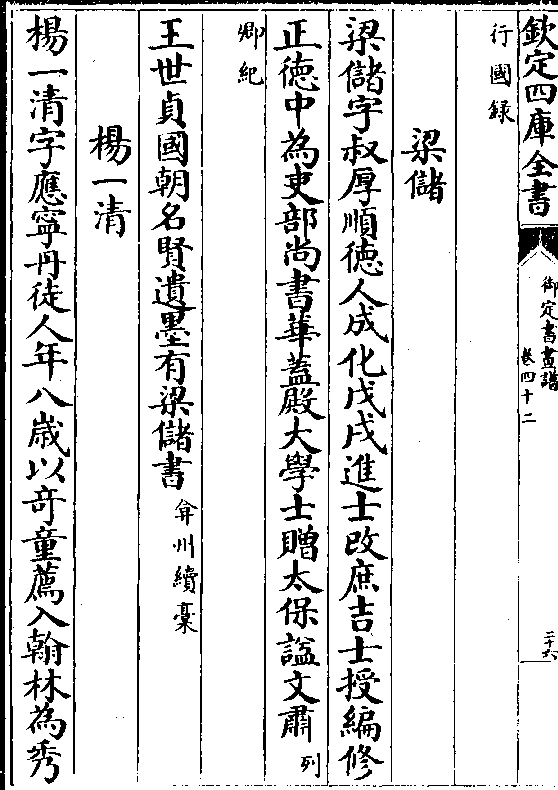 欽定四庫全書
御定書畫譜
卷四十二
二十六
行國録
梁儲
梁儲字叔厚順徳人成化戊戌進士改庶吉士授編修
正徳中為吏部尚書華蓋殿大學士贈太保諡文肅列
卿紀
王世貞國朝名賢遺墨有梁儲書弇州續稾
楊一清
楊一清字應寧丹徒人年八嵗以竒童薦入翰林為秀